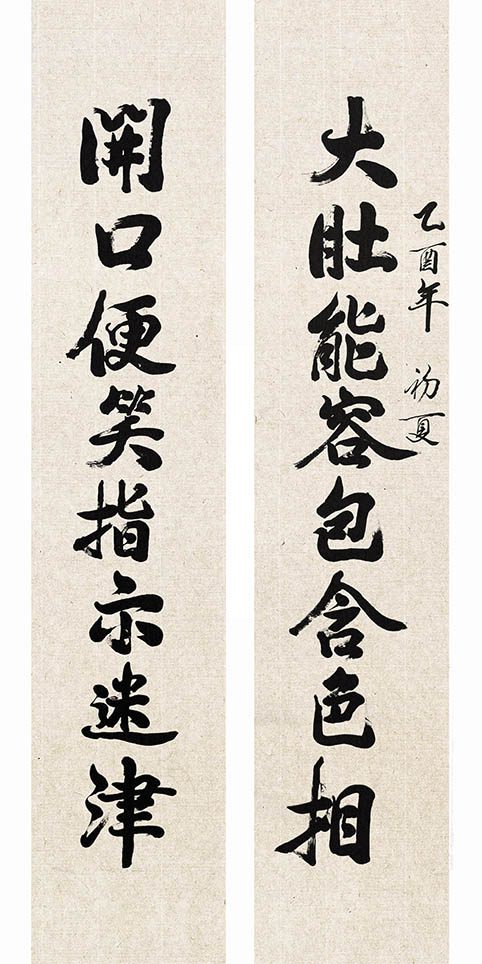 乙酉年 初夏
大肚能容包含色相
開口便笑指示迷津